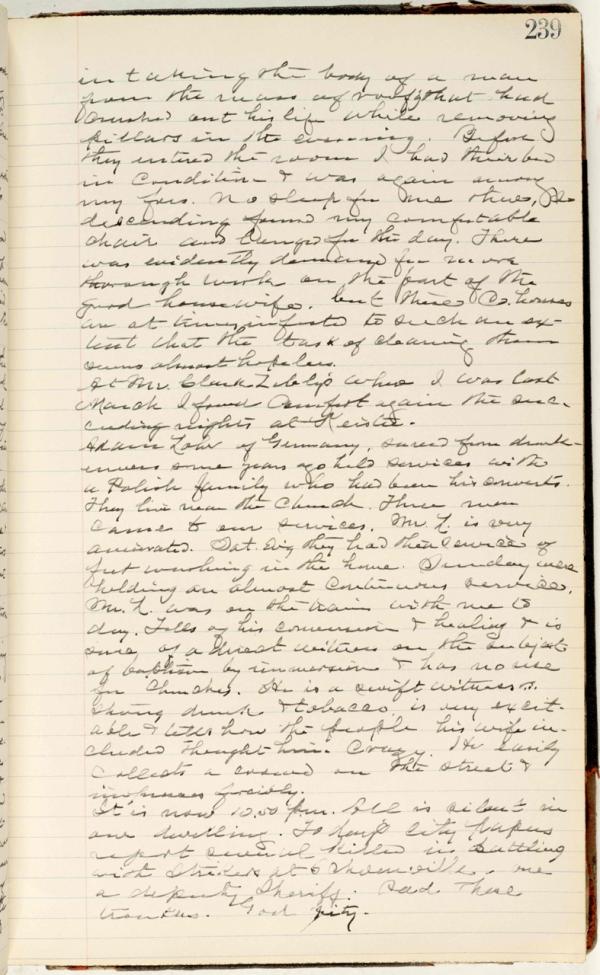 239
in taking the body of a man
from the mass of roof that had
crushed out his life while removing
pillars in the evening. Before
they entered the room I had their bed
in condition & was again among
my foes. No sleep for me there, So
descending found my comfortable
chair and longed for the day. There
was evidently demand for more
thorough work on the part of the
good housewife. but these Co. houses
are at times infested to such an ex-
tent that the task of cleaning them
seems almost hopeless.
At Mr. Clark where I was last
March I found comfort again the suc-
ceeding nights at
Adam of Germany, saved from drunk-
enness some years ago held services with
a Polish family who had been his converts.
They live near the Church. Three men
came to our services. Mr. L. is very
animated. Sat. Evg they had their service of
feet washing in the home. Sunday were
holding an almost continuous service.
Mr. L. was on the train with me to
day. Tells of his conversion & healing & is
sure of a direct witness on the subject
of baptism by immersion & has no use
for Churches. He is a swift witness vs.
strong drink & tobacco is very excit-
able & tells how the people his wife in-
cluded thought him crazy. He easily
collects a crowd on the street &
It is now 10.00 p.m. All is silent in
our dwelling. To day's city papers
report several killed in battling
with strikers at , one
a deputy Sheriff. Sad These
troubles. God pity.